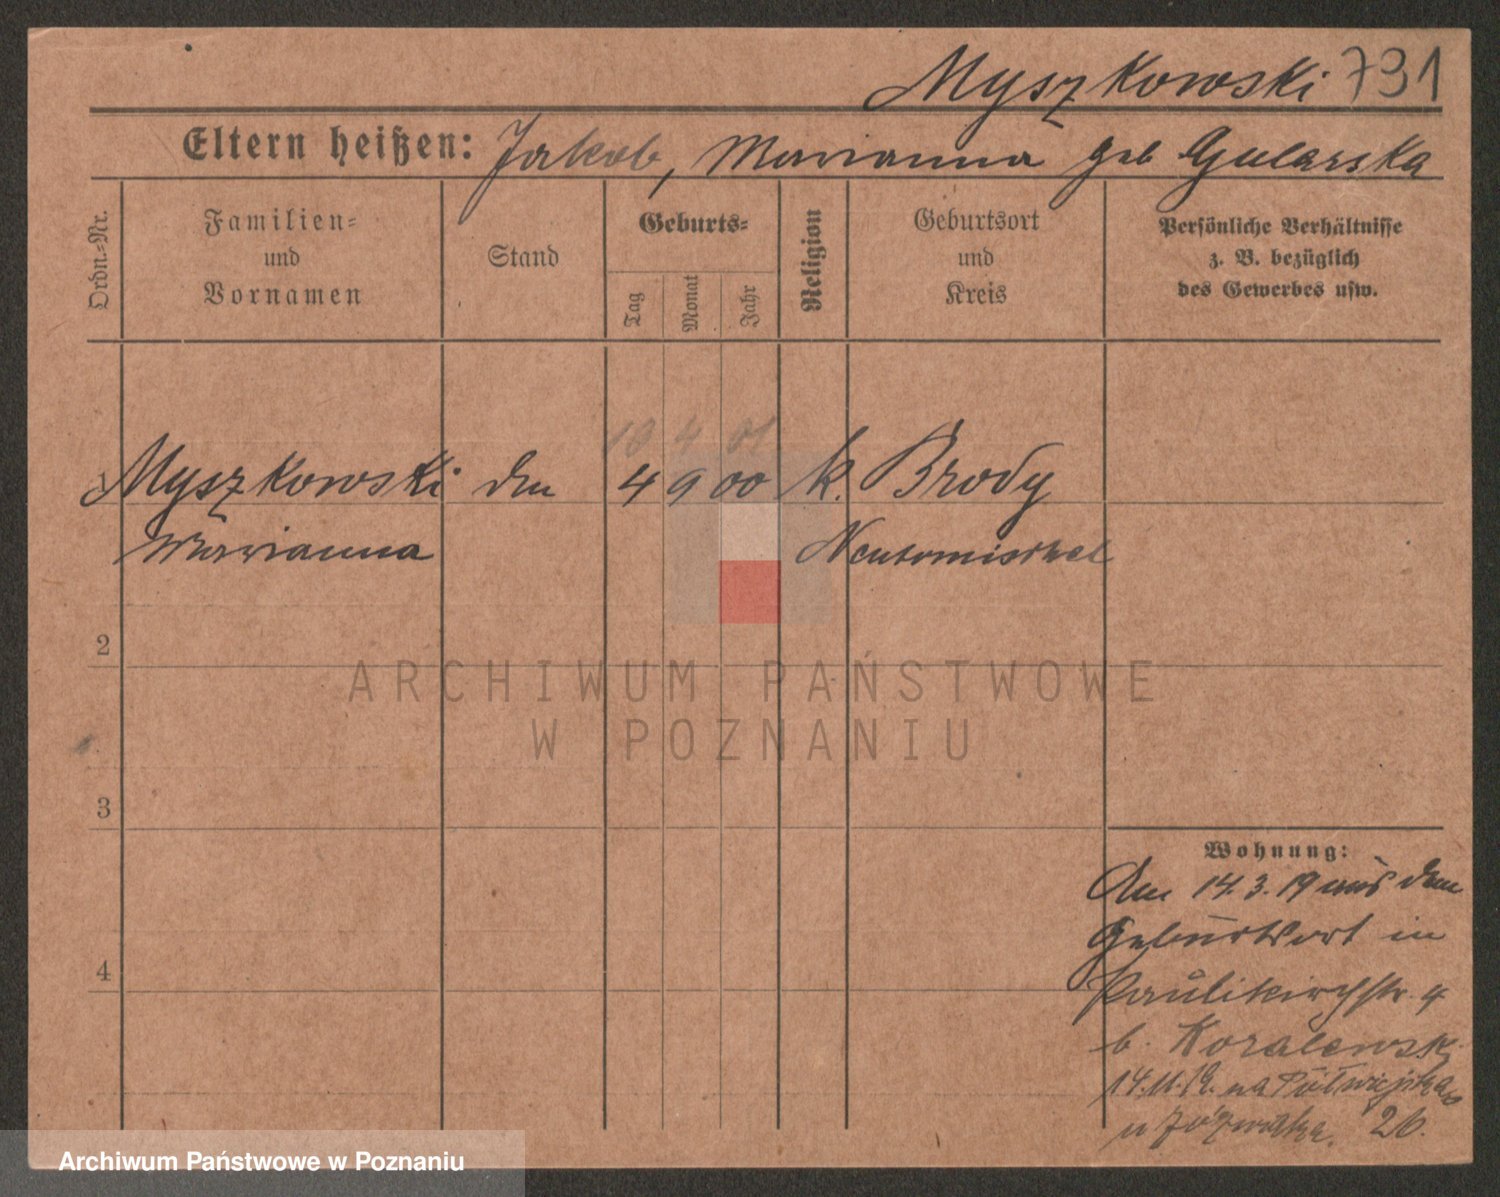 Myszkowski 731
Eltern heißen: Jakob, Marianna geb Gularska
Ordn.-Nr.
Familien-
und
Vornamen
Stand
Geburts-
Tag
Monat
Jahr
Religion
Geburtsort
und
Kreis
Persönliche Verhältnisse
z. B. bezüglich
des Gewerbes usw.
10 4 01
1 Myszkowski 4 9 00 k. Brody
Marianna Neutomischel
2
3
4
Wohnung:
Am 14.3.19 aus dem
Geburtsort in
Paulikirchstr. 4
b. Koralewski
14.11.19. na Półwiejska
u 26.
ARCHIWUM PAŃSTWOWE
W POZNANIU
Archiwum Państwowe w Poznaniu